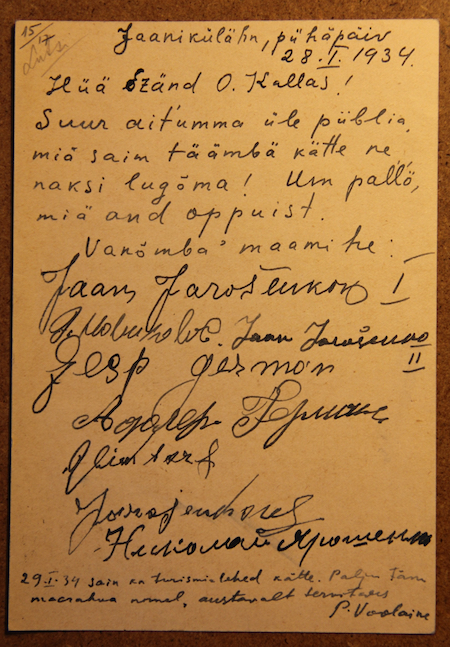 15/7
Lutsi
Jaanikülähn, pühäpäiv
28.I.1934.
Hüä Szänd O. Kallas!
Suur aitumma üle püblia,
miä saim täämbä kätte ne,
naksi lugõma! Um pallo,
miä and oppuist.
Vanõmba' maamihe:
Jaan Jarošenkov I
Jaan Jarošenko II
Jesp German
Адолер Герман
Jarojenkov
Николай Ярошенко
29.I.34 sain ka turismilehed kätte. Palju tänu
maarahva nimel, austavalt tervitades
P. Voolaine